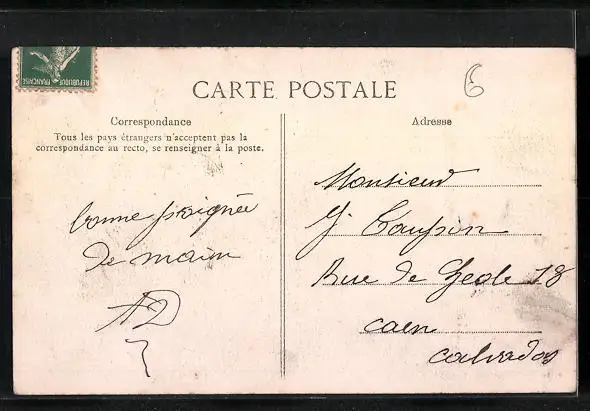 REPUBLIQUE FRANÇAISE
CARTE POSTALE
6
Correspondance
Tous les pays étrangers n'acceptent pas la
correspondance au recto, se renseigner à la poste.
bonne poignée
de main
AD
Adresse
Monsieur
Rue de Geole 18
Caen
Calvados